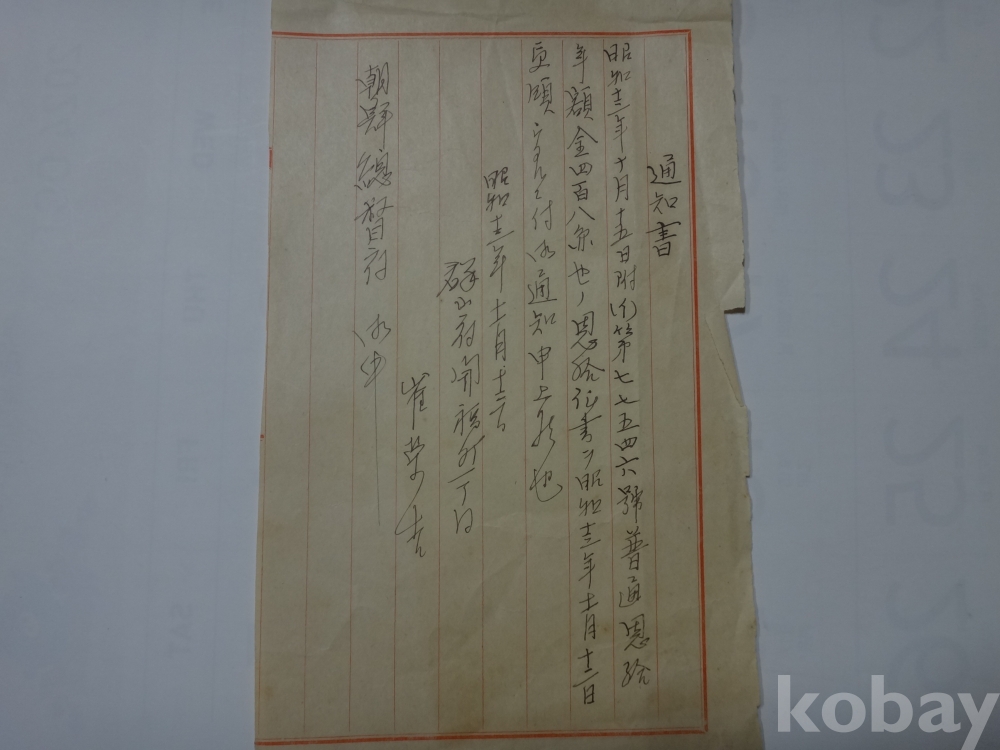 通知書
昭和十三年十月十五日附(イ)第七七五四六號普通恩給
年額金四百八円也ノ恩給証書ヲ昭和十三年十一月十二日
受領
付御通知申上候也
昭和十三年十一月十二日
群山府開福町一丁目
崔
朝鮮總督府 御中
kobay